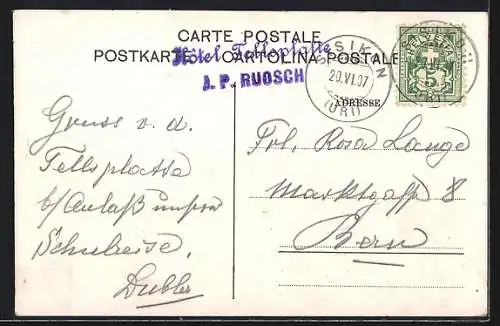 CARTE POSTALE
POSTKARTE CARTOLINA POSTALE
Hôtel Tellsplatte
J. P. RUOSCH
SISIKON
20.VI.07
(URI)
HELVETIA
5
ADRESSE
Gruss v. d.
Tellsplatte
b/Anlaß unsrer
Schulreise.
Frl. Rosa Lange
Marktgasse 8
Bern